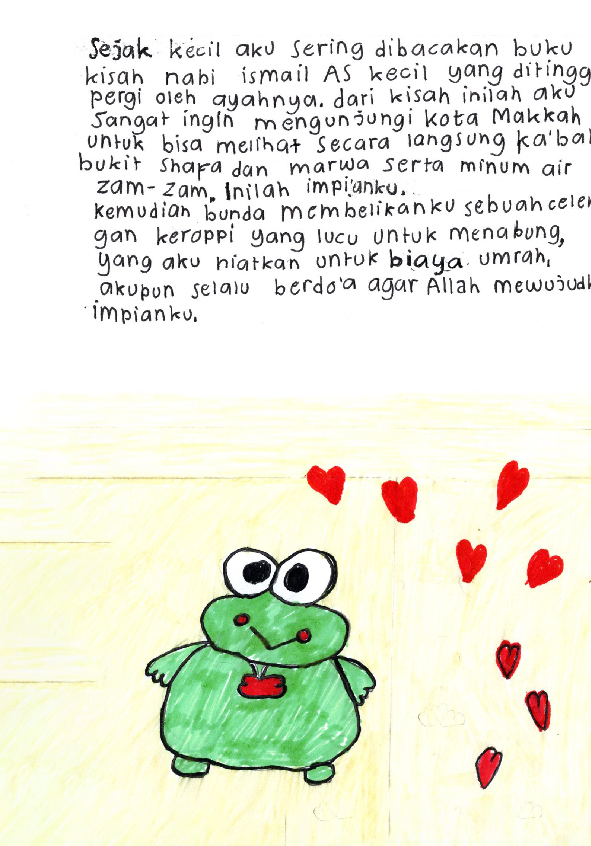 Sejak kecil aku sering dibacakan buku
kisah nabi ismail AS kecil yang ditingg
pergi oleh ayahnya. dari kisah inilah aku
Sangat ingin mengunjungi kota Makkah
untuk bisa melihat secara langsung ka'bah
bukit shafa dan marwa serta minum air
zam-zam. Inilah impianku.
kemudian bunda membelikanku sebuah celen
gan keroppi yang lucu untuk menabung,
yang aku niatkan untuk biaya umrah.
akupun selalu berdo'a agar Allah mewujudk
impianku.